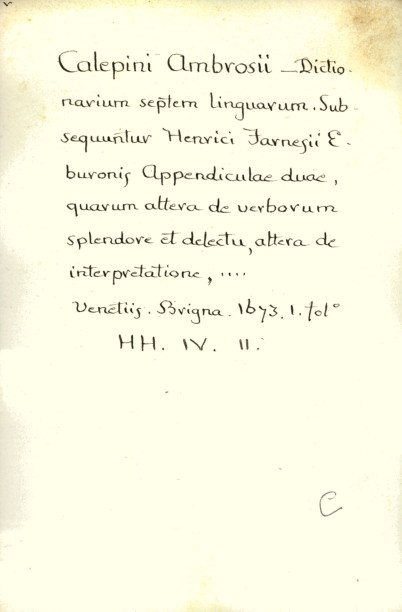 Calepini Ambrosii – Dictio-
narium septem linguarum. Sub-
sequuntur Henrici Farnesii E-
buronis Appendiculae duae,
quarum altera de verborum
splendore et delectu, altera de
interpretatione, ....
Venetiis. Brigna. 1673. 1. folº
HH. IV. II.
C